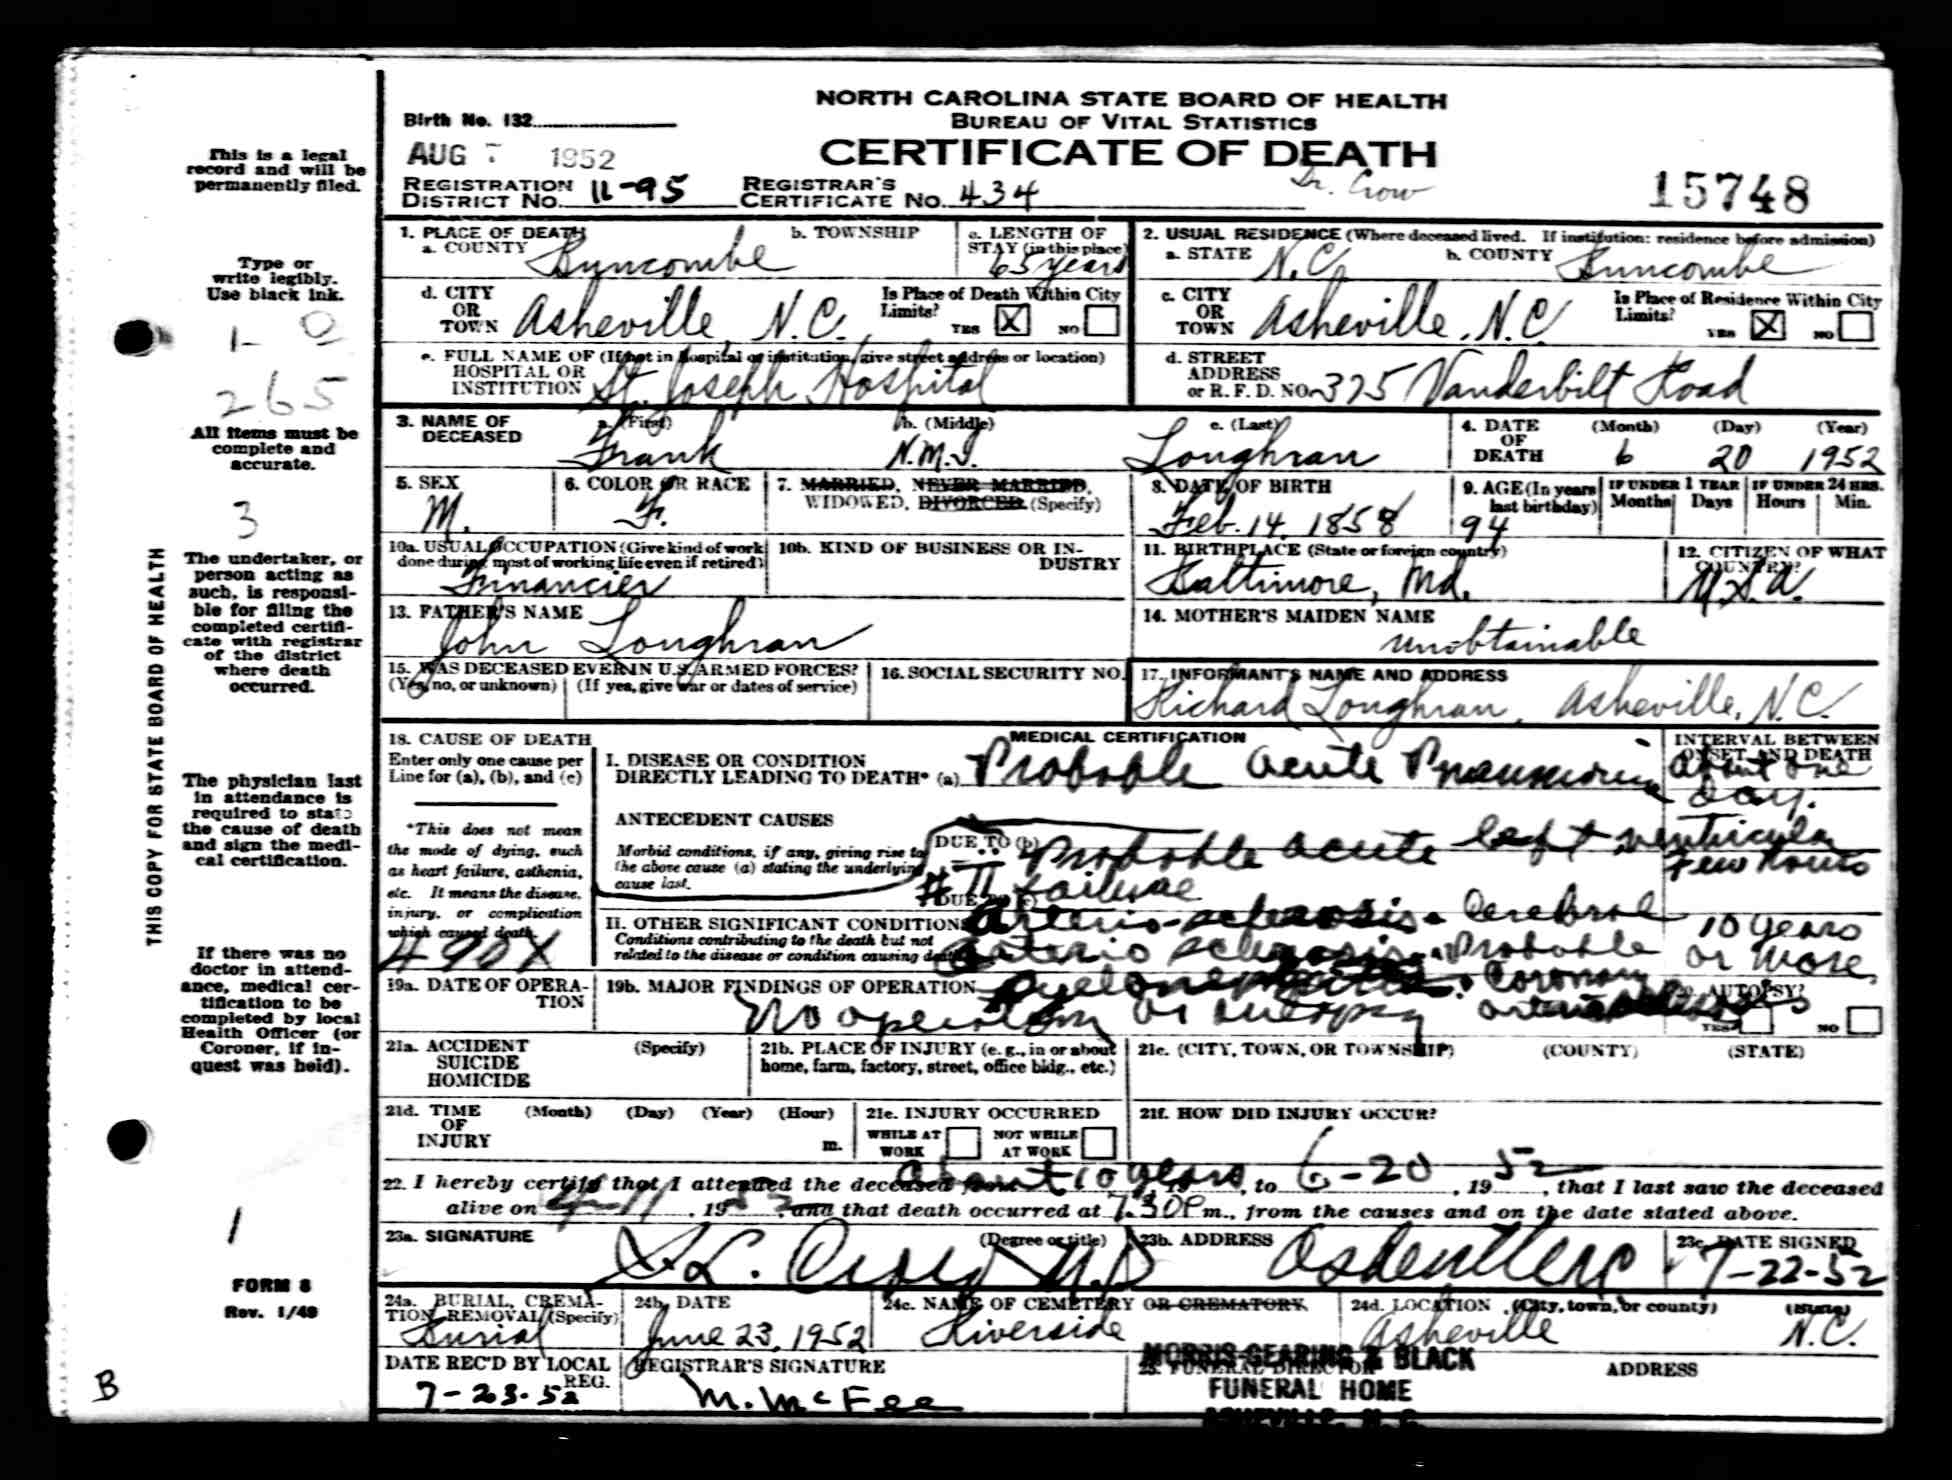 NORTH CAROLINA STATE BOARD OF HEALTH
BUREAU OF VITAL STATISTICS
CERTIFICATE OF DEATH
Birth No. 132
AUG 7 1952
REGISTRATION DISTRICT No. 11-95
REGISTRAR'S CERTIFICATE No. 434
Dr. Crow
15748
This is a legal
record and will be
permanently filed.
Type or
write legibly.
Use black ink.
1- 0
265
All items must be
complete and
accurate.
3
The undertaker, or
person acting as
such, is responsi-
ble for filing the
completed certifi-
cate with registrar
of the district
where death
occurred.
THIS COPY FOR STATE BOARD OF HEALTH
The physician last
in attendance is
required to state
the cause of death
and sign the medi-
cal certification.
If there was no
doctor in attend-
ance, medical cer-
tification to be
completed by local
Health Officer (or
Coroner, if in-
quest was held).
1
FORM 8
Rev. 1/49
B
1. PLACE OF DEATH
a. COUNTY Buncombe
b. TOWNSHIP
c. LENGTH OF STAY (in this place) 65 years
2. USUAL RESIDENCE (Where deceased lived. If institution: residence before admission)
a. STATE N.C.
b. COUNTY Buncombe
d. CITY OR TOWN Asheville, N.C.
Is Place of Death Within City Limits? YES X NO
c. CITY OR TOWN Asheville, N.C.
Is Place of Residence Within City Limits? YES X NO
e. FULL NAME OF (If not in hospital or institution, give street address or location)
HOSPITAL OR INSTITUTION St. Joseph Hospital
d. STREET ADDRESS or R. F. D. NO. 325 Vanderbilt Road
3. NAME OF DECEASED
a. (First) Frank
b. (Middle) N.M.I.
c. (Last) Loughran
4. DATE OF DEATH (Month) (Day) (Year) 6 20 1952
5. SEX M.
6. COLOR OR RACE
7. MARRIED, NEVER MARRIED, WIDOWED, DIVORCED (Specify)
8. DATE OF BIRTH Feb. 14, 1858
9. AGE (In years last birthday) 94
IF UNDER 1 YEAR Months Days
IF UNDER 24 HRS. Hours Min.
10a. USUAL OCCUPATION (Give kind of work done during most of working life even if retired) Financier
10b. KIND OF BUSINESS OR INDUSTRY
11. BIRTHPLACE (State or foreign country) Baltimore, Md.
12. CITIZEN OF WHAT COUNTRY? U.S.A.
13. FATHER'S NAME John Loughran
14. MOTHER'S MAIDEN NAME unobtainable
15. WAS DECEASED EVER IN U. S. ARMED FORCES?
(Yes, no, or unknown) (If yes, give war or dates of service)
16. SOCIAL SECURITY NO.
17. INFORMANT'S NAME AND ADDRESS
Richard Loughran, Asheville, N.C.
18. CAUSE OF DEATH
Enter only one cause per
Line for (a), (b), and (c)
*This does not mean
the mode of dying, such
as heart failure, asthenia,
etc. It means the disease,
injury, or complication
which caused death.
490X
MEDICAL CERTIFICATION
INTERVAL BETWEEN ONSET AND DEATH
I. DISEASE OR CONDITION
DIRECTLY LEADING TO DEATH* (a) Probable acute Pneumonia about one day.
ANTECEDENT CAUSES
Morbid conditions, if any, giving rise to
the above cause (a) stating the underlying
cause last.
DUE TO (b) Probable acute left ventricular failure Few hours
DUE TO (c)
# II
II. OTHER SIGNIFICANT CONDITIONS
Conditions contributing to the death but not
related to the disease or condition causing death.
Arterio-sclerosis. Cerebral 10 years
arterio sclerosis. Probable or more.
pyelonephritis. Coronary
19a. DATE OF OPERATION
19b. MAJOR FINDINGS OF OPERATION
No operation or autopsy
20. AUTOPSY?
YES NO
21a. ACCIDENT SUICIDE HOMICIDE (Specify)
21b. PLACE OF INJURY (e. g., in or about home, farm, factory, street, office bldg., etc.)
21c. (CITY, TOWN, OR TOWNSHIP) (COUNTY) (STATE)
21d. TIME OF INJURY (Month) (Day) (Year) (Hour) m.
21e. INJURY OCCURRED
WHILE AT WORK NOT WHILE AT WORK
21f. HOW DID INJURY OCCUR?
22. I hereby certify that I attended the deceased from about 10 years, 19, to 6-20, 1952, that I last saw the deceased
alive on 4-11, 1952, and that death occurred at 7:30 P m., from the causes and on the date stated above.
23a. SIGNATURE (Degree or title) M.D.
23b. ADDRESS Asheville NC
23c. DATE SIGNED 7-22-52
24a. BURIAL, CREMATION, REMOVAL (Specify) Burial
24b. DATE June 23, 1952
24c. NAME OF CEMETERY OR CREMATORY Riverside
24d. LOCATION (City, town, or county) (State) Asheville N.C.
DATE REC'D BY LOCAL REG. 7-23-52
REGISTRAR'S SIGNATURE M. McFee
25. FUNERAL DIRECTOR ADDRESS
MORRIS-GEARING & BLACK
FUNERAL HOME
ASHEVILLE, N. C.